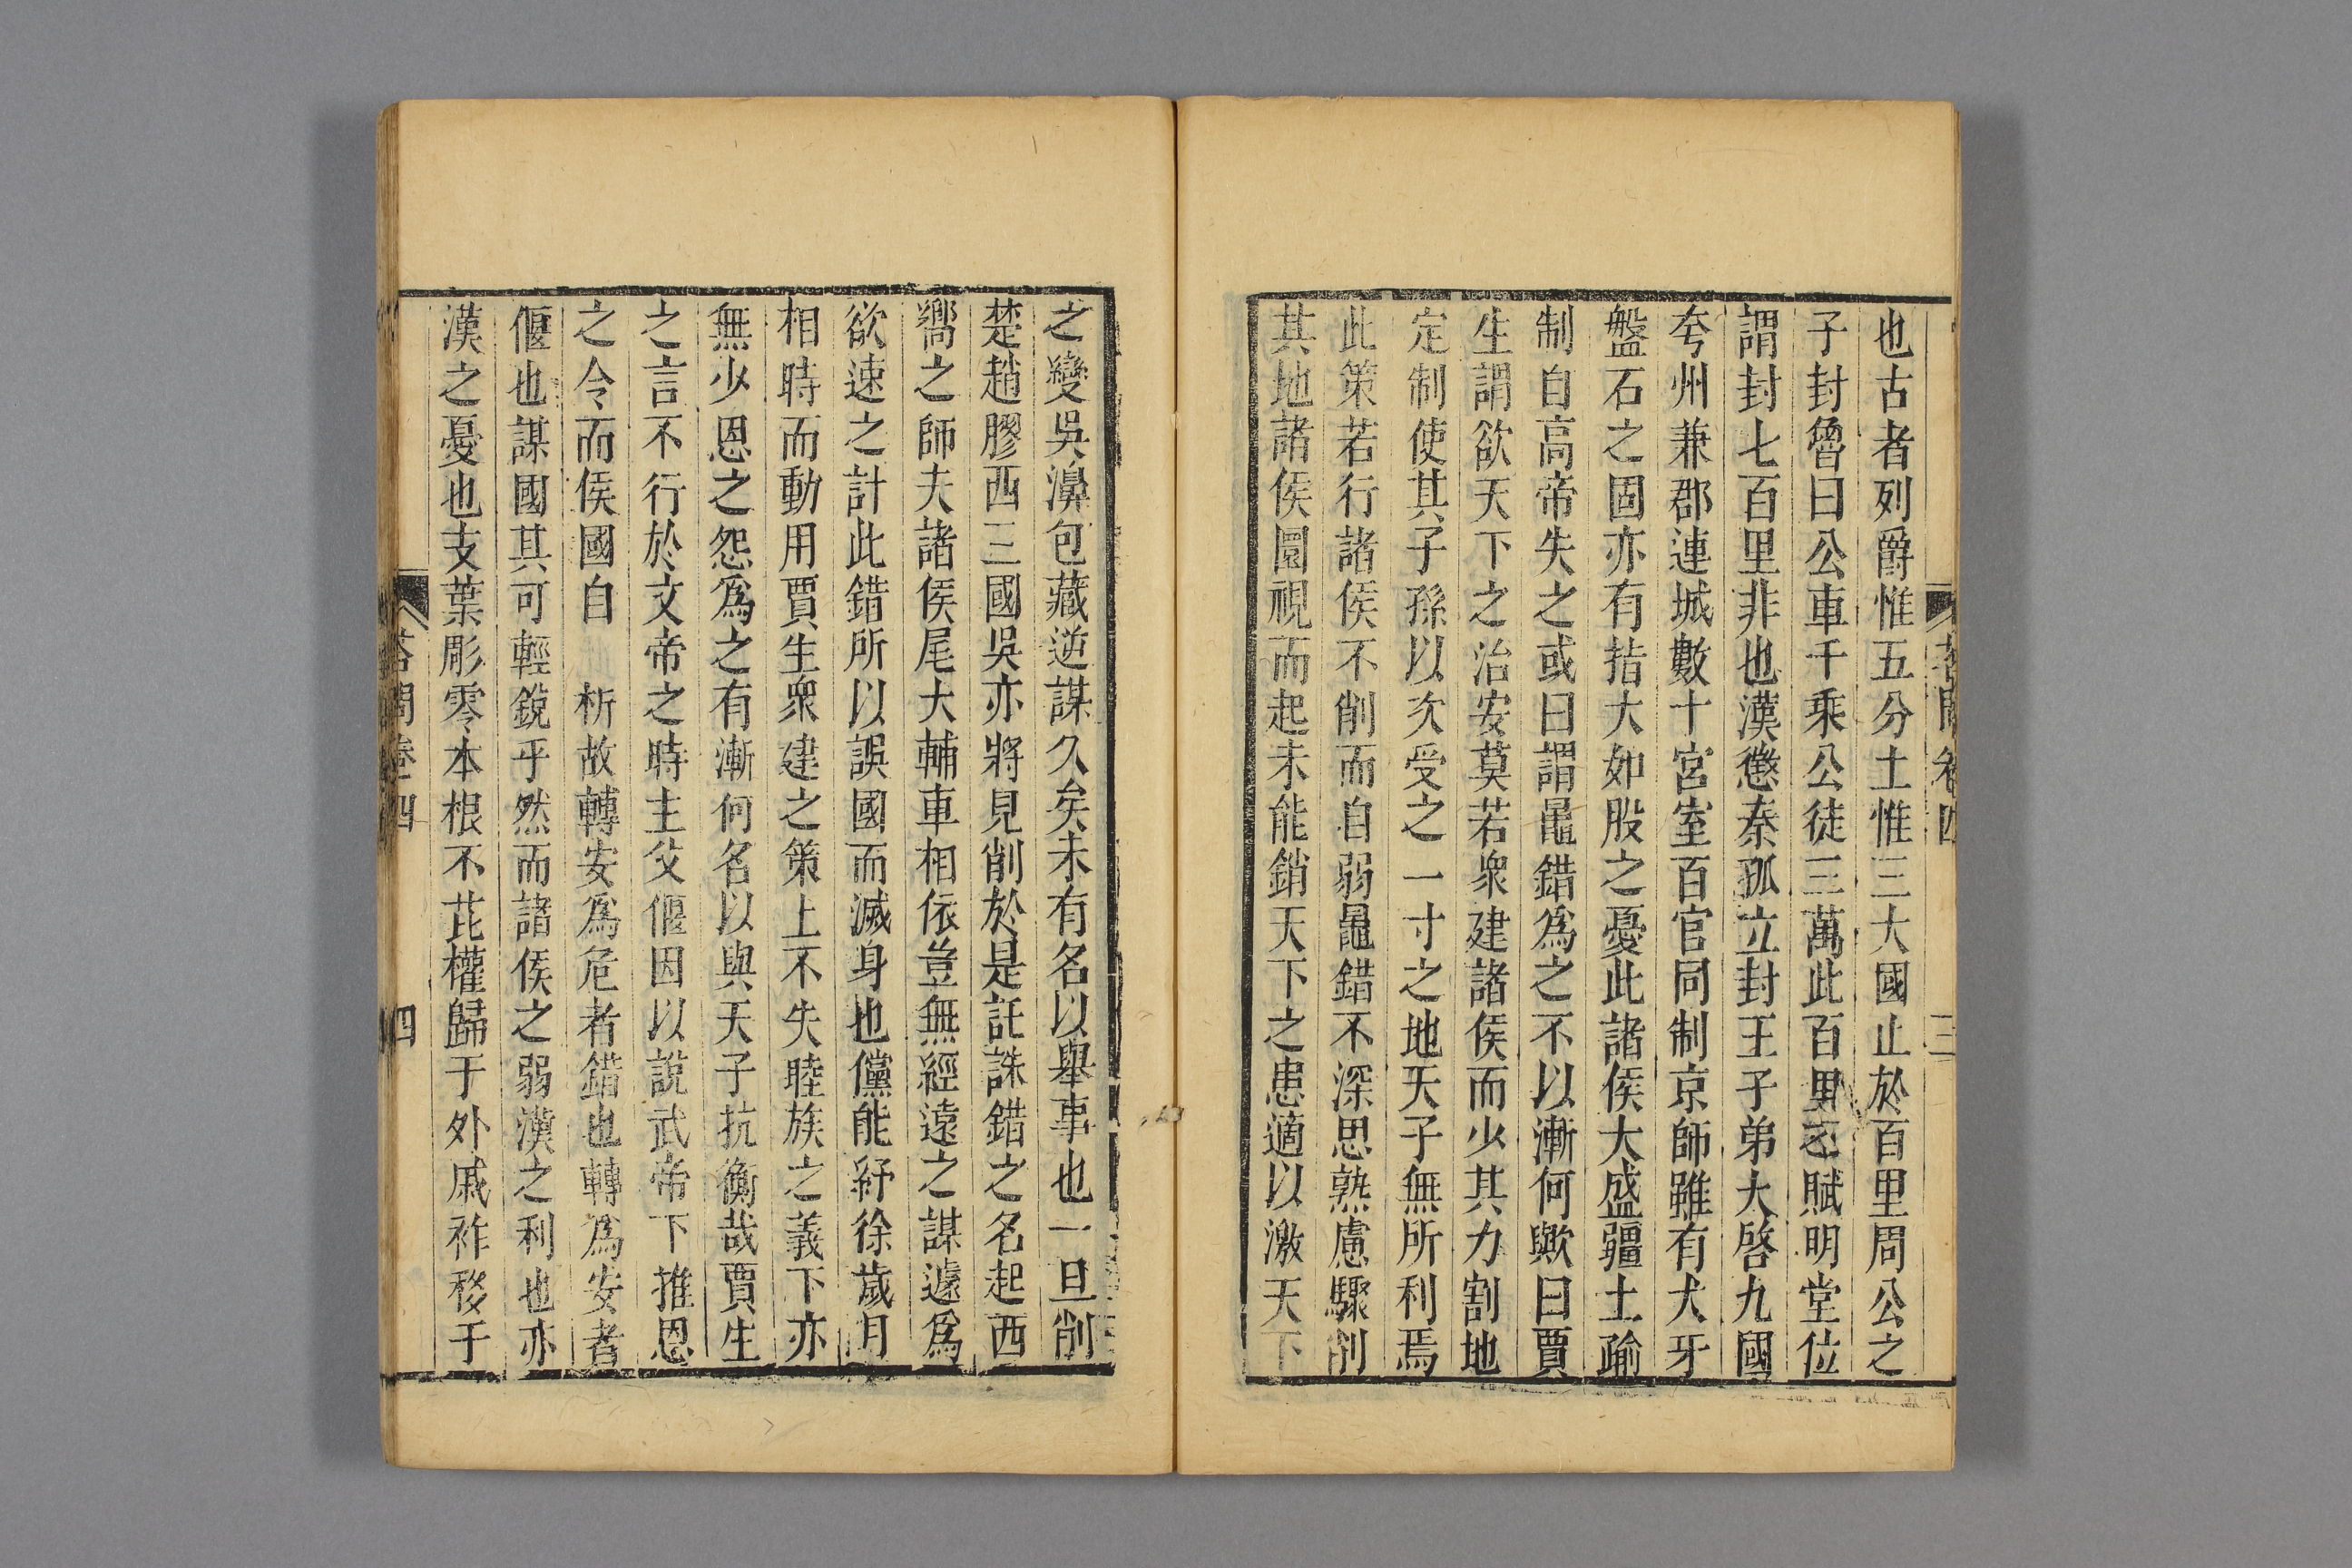 也古者列爵惟五分土惟三大國止於百里周公之
子封魯曰公車千乘公徒三萬此百里之賦明堂位
謂封七百里非也漢懲秦孤立封王子弟大啓九國
夸州兼郡連城數十宮室百官同制京師雖有犬牙
盤石之固亦有指大如股之憂此諸侯大盛疆土踰
制自高帝失之或曰謂鼂錯爲之不以漸何歟曰賈
生謂欲天下之治安莫若衆建諸侯而少其力割地
定制使其子孫以次受之一寸之地天子無所利焉
此策若行諸侯不削而自弱鼂錯不深思熟慮驟削
其地諸侯圜視而起未能銷天下之患適以激天下
之變吳濞包藏逆謀久矣未有名以舉事也一旦削
楚趙膠西三國吳亦將見削於是託誅錯之名起西
嚮之師夫諸侯尾大輔車相依豈無經遠之謀遽爲
欲速之計此錯所以誤國而滅身也儻能紓徐歲月
相時而動用賈生衆建之策上不失睦族之義下亦
無少恩之怨爲之有漸何名以與天子抗衡哉賈生
之言不行於文帝之時主父偃因以說武帝下推恩
之令而侯國自 析故轉安爲危者錯也轉爲安者
偃也謀國其可輕銳乎然而諸侯之弱漢之利也亦
漢之憂也支葉彫零本根不芘權歸于外戚祚移于
答問卷四 四